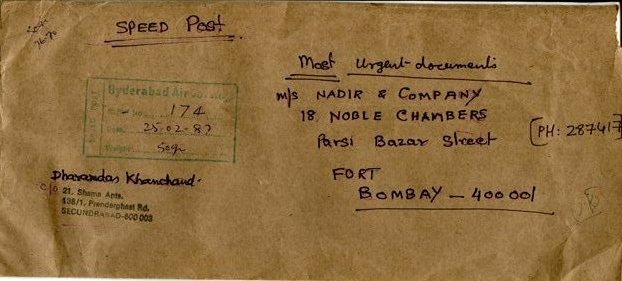 SPEED Post.
Most Urgent documents
M/S NADIR & COMPANY
18, NOBLE CHAMBERS
Parsi Bazar Street
[PH: 287417]
FORT
BOMBAY - 400001
Hyderabad Air
No. 174
Date 25.02.87
50gr
Dharamdas Khanchand.
C/o 21. Shama Apts.
138/1. Prenderghast Rd.
SECUNDRABAD-500 003